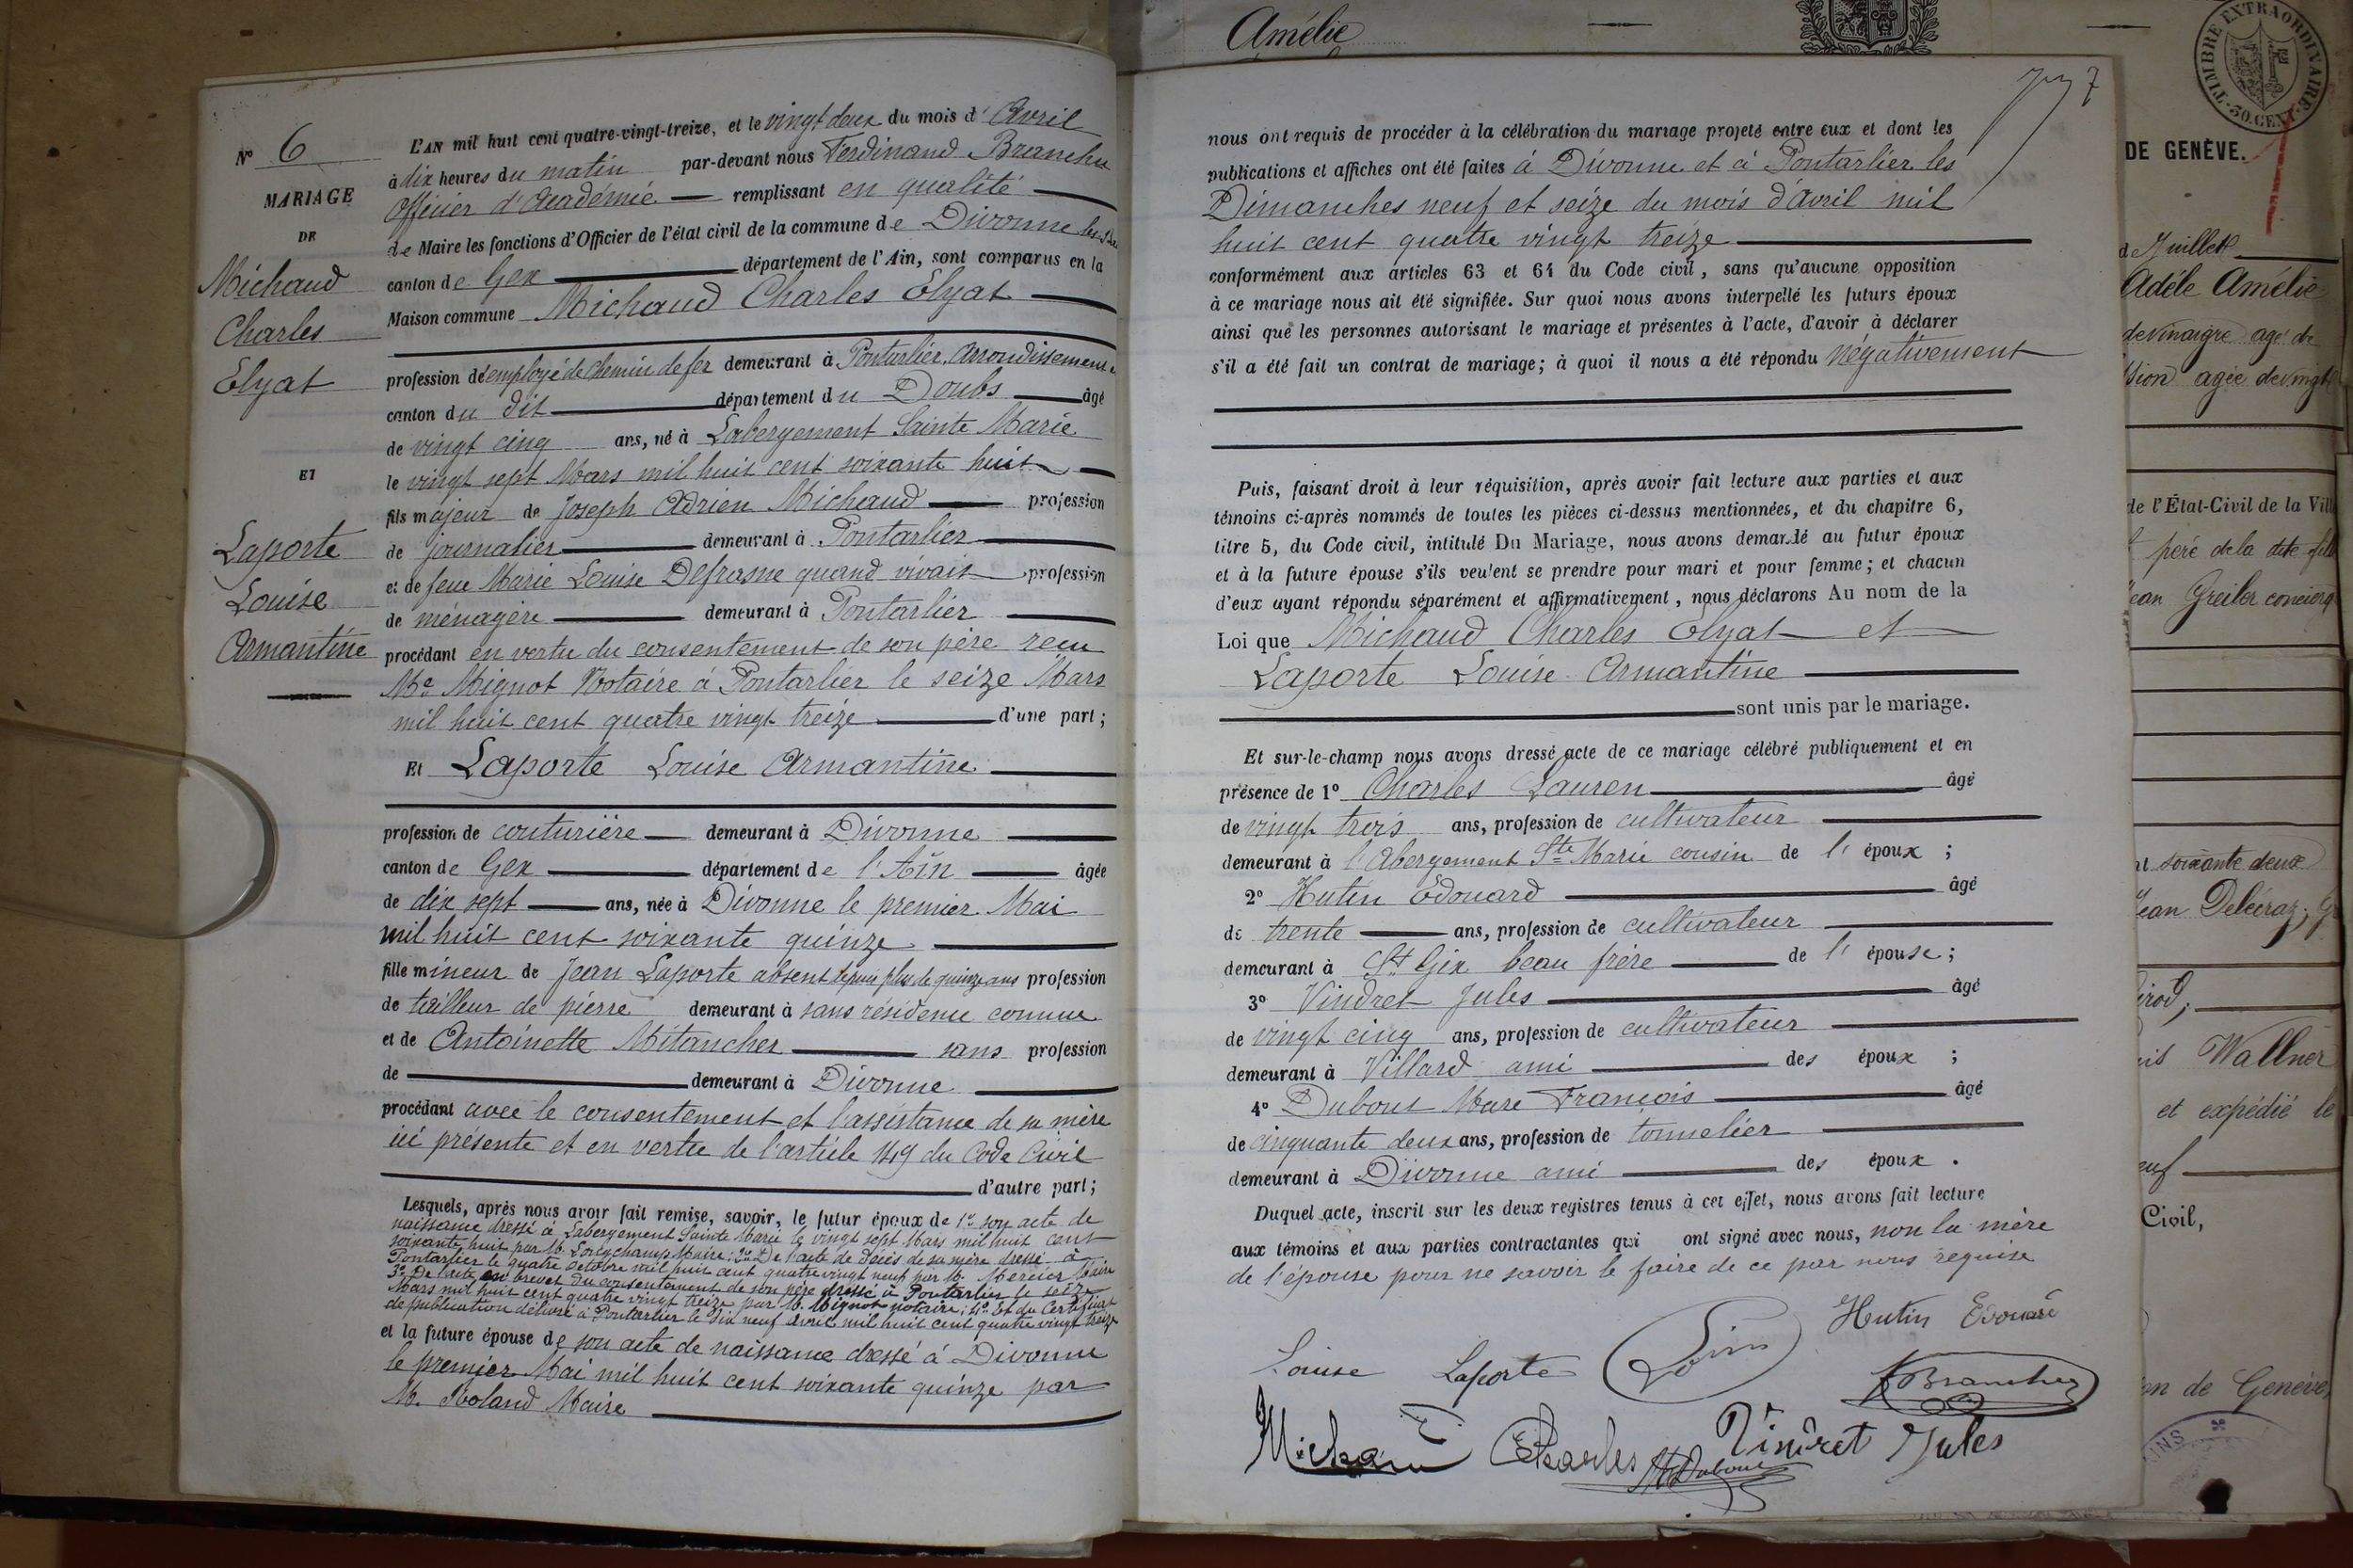 N° 6
MARIAGE
DE
Michaud
Charles
Elyat
ET
Laporte
Louise
Armantine
L'AN mil huit cent quatre-vingt-treize, et le vingt deux du mois d'Avril
à dix heures du matin par-devant nous Ferdinand Branchu
Officier d'Académie remplissant en qualité
de Maire les fonctions d'Officier de l'état civil de la commune de Divonne les
canton de Gex département de l'Ain, sont comparus en la
Maison commune Michaud Charles Elyat
profession d'employé de chemin de fer demeurant à Pontarlier, arrondissement
canton du dit département du Doubs âgé
de vingt cinq ans, né à Labergement Sainte Marie
le vingt sept Mars mil huit cent soixante huit
fils majeur de Joseph Adrien Michaud profession
de journalier demeurant à Pontarlier
et de feue Marie Louise Defrasne quand vivait profession
de ménagère demeurant à Pontarlier
procédant en vertu du consentement de son père reçu
Me Mignot Notaire à Pontarlier le seize Mars
mil huit cent quatre vingt treize d'une part;
Et Laporte Louise Armantine
profession de couturière demeurant à Divonne
canton de Gex département de l'Ain âgée
de dix sept ans, née à Divonne le premier Mai
mil huit cent soixante quinze
fille mineur de Jean Laporte absent depuis plus de quinze ans profession
de tailleur de pierre demeurant à sans résidence connue
et de Antoinette Mitancher sans profession
de demeurant à Divonne
procédant avec le consentement et l'assistance de sa mère
ici présente et en vertu de l'article 149 du Code Civil
d'autre part;
Lesquels, après nous avoir fait remise, savoir, le futur époux de 1° son acte de
naissance dressé à Labergement Sainte Marie le vingt sept Mars mil huit cent
soixante huit par M. Longchamp Maire; 2° De l'acte de décès de sa mère dressé à
Pontarlier le quatre octobre mil huit cent quatre vingt neuf par M. Mercier Maire
3° De l'acte en brevet du consentement de son père dressé à Pontarlier le seize
Mars mil huit cent quatre vingt treize par M. Mignot notaire; 4° Et du Certificat
de publication délivré à Pontarlier le dix neuf Avril mil huit cent quatre vingt treize
et la future épouse de son acte de naissance dressé à Divonne
le premier Mai mil huit cent soixante quinze par
M. Roland Maire
Amélie
7
nous ont requis de procéder à la célébration du mariage projeté entre eux et dont les
publications et affiches ont été faites à Divonne et à Pontarlier les
Dimanches neuf et seize du mois d'Avril mil
huit cent quatre vingt treize
conformément aux articles 63 et 64 du Code civil, sans qu'aucune opposition
à ce mariage nous ait été signifiée. Sur quoi nous avons interpellé les futurs époux
ainsi que les personnes autorisant le mariage et présentes à l'acte, d'avoir à déclarer
s'il a été fait un contrat de mariage; à quoi il nous a été répondu négativement
Puis, faisant droit à leur réquisition, après avoir fait lecture aux parties et aux
témoins ci-après nommés de toutes les pièces ci-dessus mentionnées, et du chapitre 6,
titre 5, du Code civil, intitulé Du Mariage, nous avons demandé au futur époux
et à la future épouse s'ils veulent se prendre pour mari et pour femme; et chacun
d'eux ayant répondu séparément et affirmativement, nous déclarons Au nom de la
Loi que Michaud Charles Elyat et
Laporte Louise Armantine
sont unis par le mariage.
Et sur-le-champ nous avons dressé acte de ce mariage célébré publiquement et en
présence de 1° Charles Lauren âgé
de vingt trois ans, profession de cultivateur
demeurant à l'Abergement Ste Marie cousin de l'époux;
2° Hutin Edouard âgé
de trente ans, profession de cultivateur
demeurant à St Gix beau frère de l'épouse;
3° Vindret Jules âgé
de vingt cinq ans, profession de cultivateur
demeurant à Villard ami des époux;
4° Dubout Marc François âgé
de cinquante deux ans, profession de tonnelier
demeurant à Divonne ami des époux.
Duquel acte, inscrit sur les deux registres tenus à cet effet, nous avons fait lecture
aux témoins et aux parties contractantes qui ont signé avec nous, non la mère
de l'épouse pour ne savoir le faire de ce par nous requise
Hutin Edouard
Louise Laporte
F Branchu
Michaud Charles
Vindret Jules
Dubout
TIMBRE EXTRAORDINAIRE
50 CENT.
DE GENÈVE.
de Juillet
Adèle Amélie
de vinaigre agé de
sion agée de vingt
de l'État-Civil de la Vill
père de la dite fill
ean Greiler concierg
nt soixante deux
Jean Delécraz; G
irod;
is Wallner
et expédié le
euf
Civil,
on de Genève,